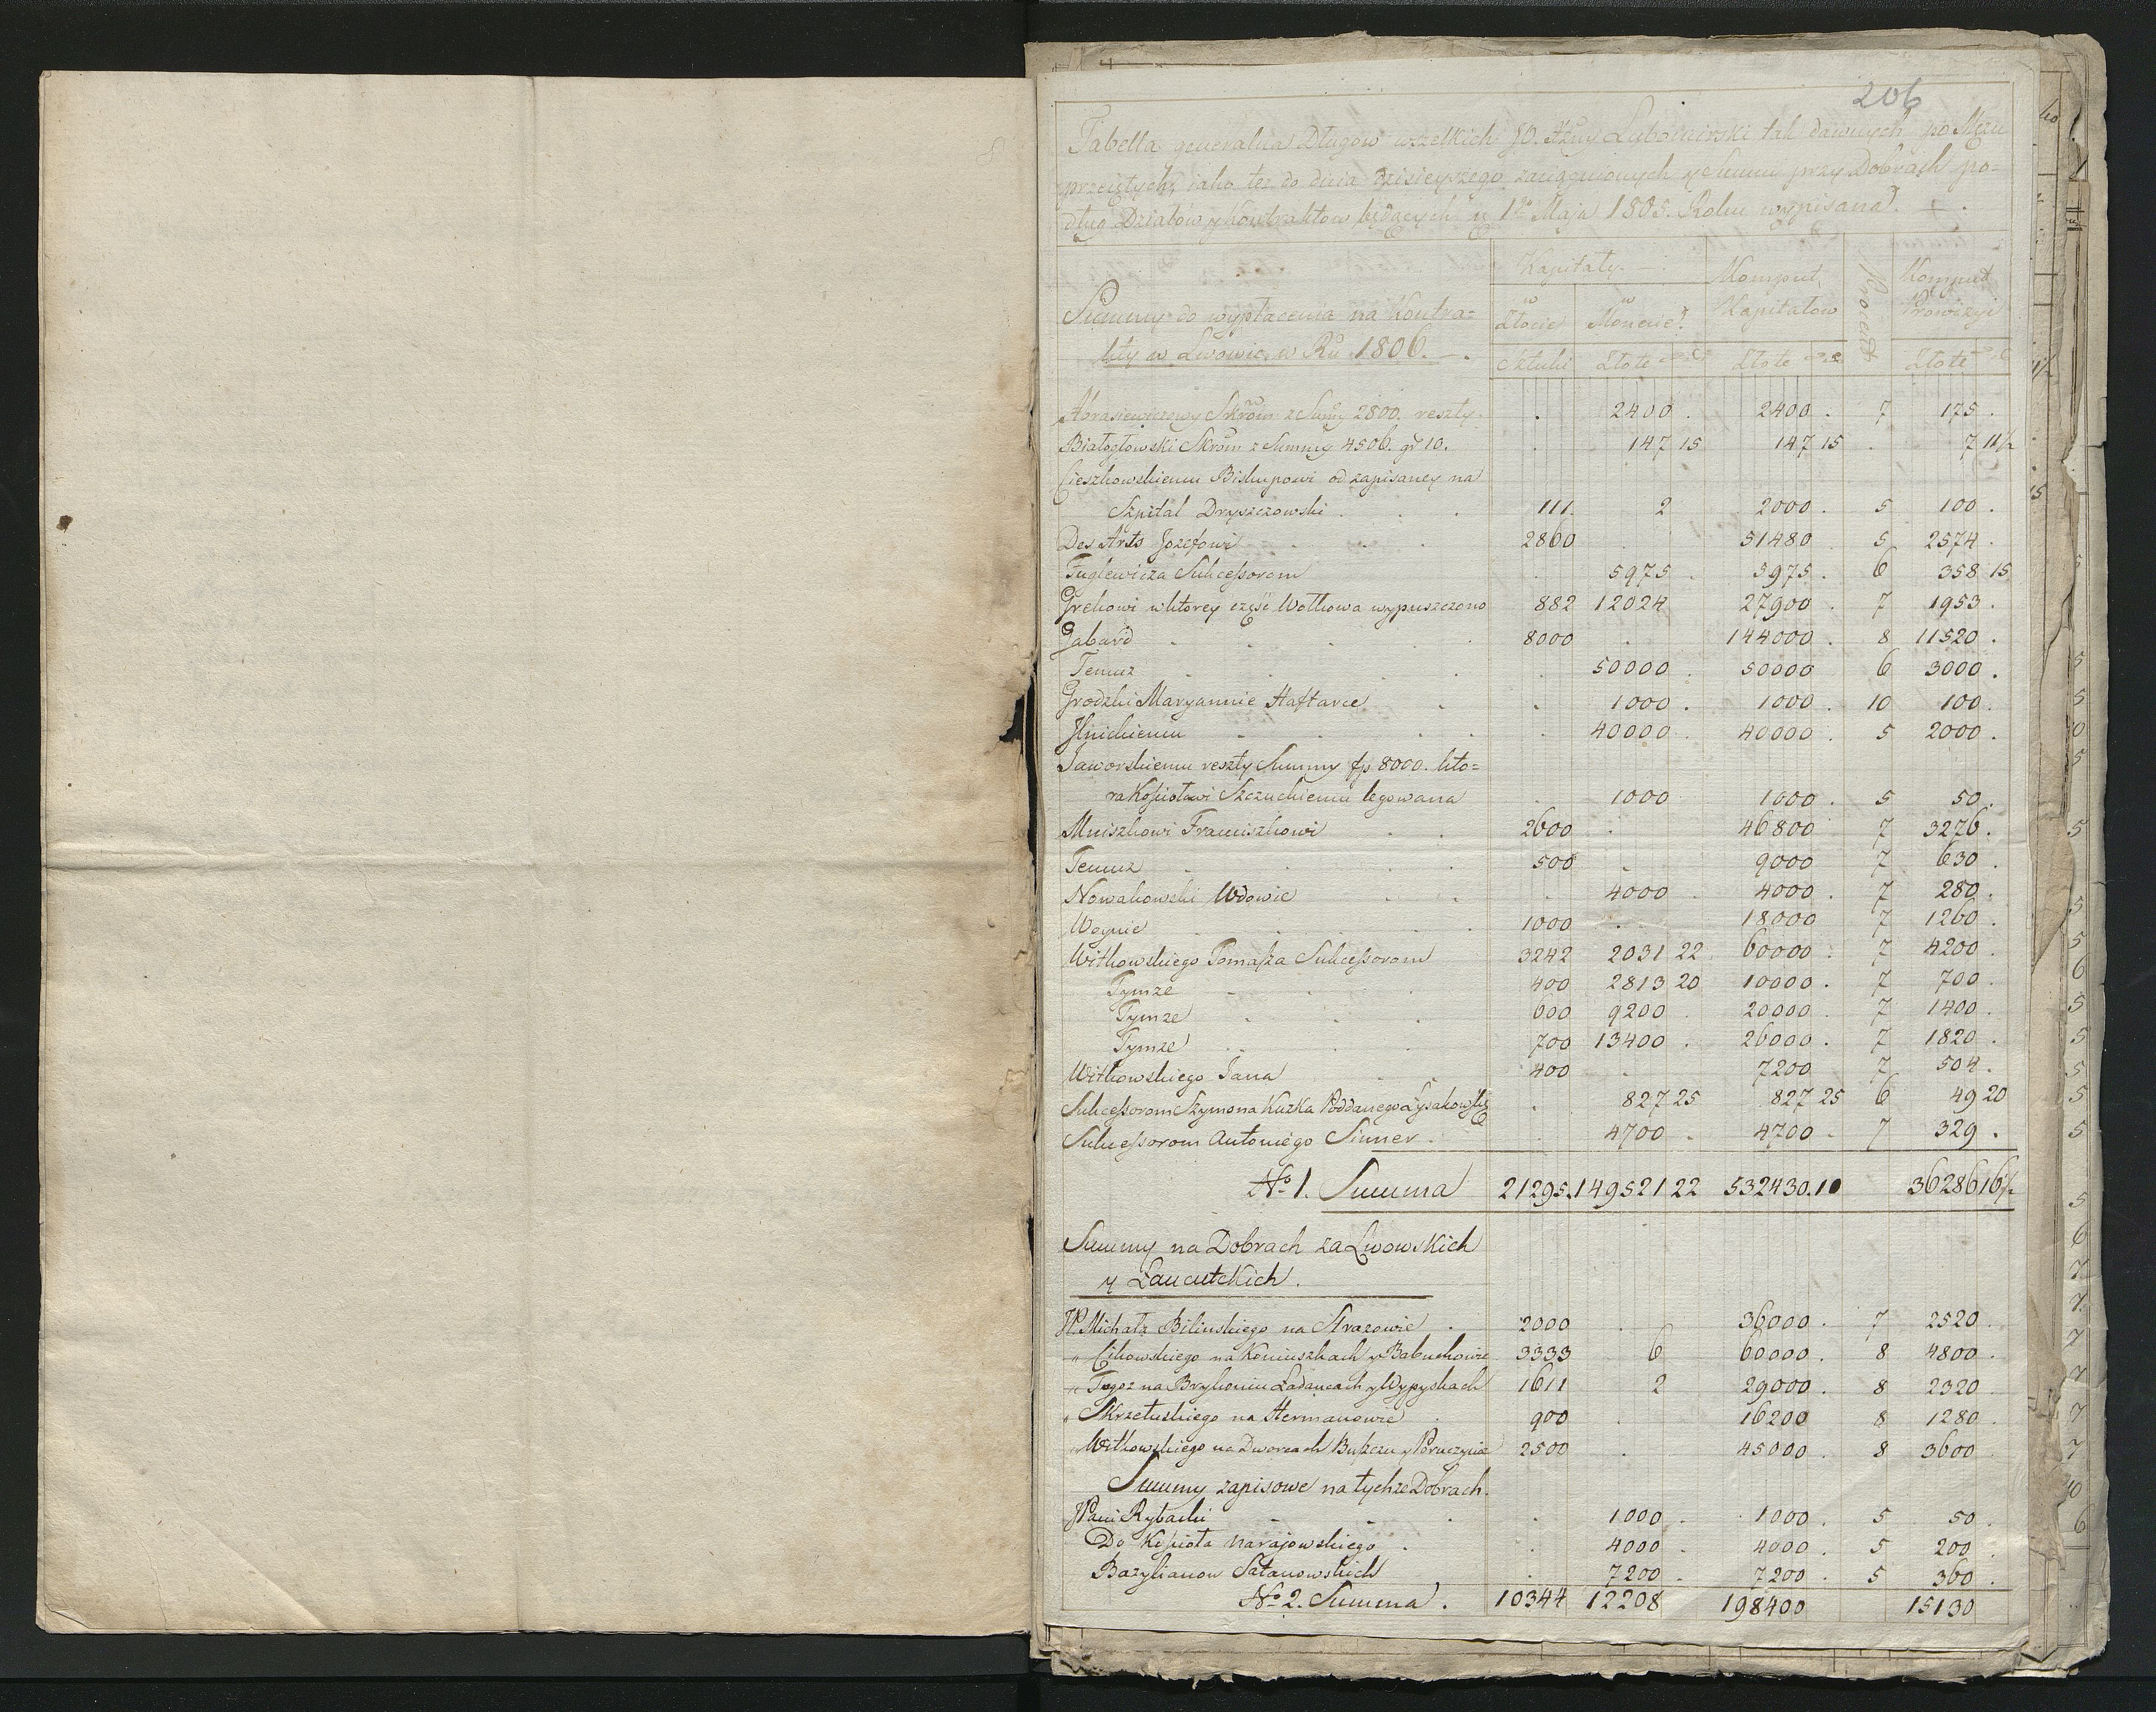 206
Tabella generalna Długow wszelkich JO. Xżny Lubomirski tak dawnych po Mężu
przeiętych, iako też do dnia dzisieyszego zaciągnionych y Summ przy Dobrach po-
dług Działów y Kontraktow będących na 1go Maja 1805. Roku wypisana.
Summy do wypłacenia na Kontra=
kty w Lwowie w Ru 1806.
Kapitały
w Złocie w Monecie
Komput Kapitałow
Procent
Komput Prowizyi
Sztuki Złote Złote Złote
Abrasiewiczowy Skrom z Sumy 2800. reszty . 2400 . 2400 . 7 175 .
Białogłowski Skrom z Summy 4506. gr 10. . 147 15 147 15 . 7 11½
Cieszkowskiemu Biskupowi od zapisaney na
Szpital Dryszczowski . . . 111. 2 2000 . 5 100 .
Des Arts Jozefowi . . . 2860 51480 . 5 2574 .
Fuglewicza Sukcessorom . 5975 . 5975 . 6 358 15
Grekowi wktorey część Wołkowa wypuszczono 882 12024 27900 . 7 1953 .
Gabard . . . . 8000 . 144000 . 8 11520 .
Temuz . . . . 50000 . 50000 6 3000 .
Grodzki Maryannie Haftarce . . 1000 . 1000 . 10 100 .
Ilnickiemu . . . . . 40000 . 40000 . 5 2000 .
Jaworskiemu reszty Summy fp 8000. kto=
ra Kościołowi Szczuckiemu legowana . 1000 1000 . 5 50 .
Mniszkowi Franciszkowi . . 2600 . 46800 7 3276 .
Temuz . . . . 500 . 9000 7 630 .
Nowakowski Wdowie . . . 4000 . 4000 . 7 280 .
Woynie . . . . . 1000 . 18000 7 1260 .
Witkowskiego Tomasza Sukcessorom 3242 2031 22 60000 . 7 4200 .
Tymze . . . 400 2813 20 10000 . 7 700 .
Tymze . . . 600 9200 . 20000 . 7 1400 .
Tymze . . . 700 13400 . 26000 . 7 1820 .
Witkowskiego Jana . . 400 . 7200 7 504 .
Sukcessorom Szymona Kuzka Poddanego . 827 25 827 25 6 49 20
Sukcessorom Antoniego Sinner . . 4700 . 4700 . 7 329 .
No 1. Summa 21295. 149521 22 532430. 10 36286 16½
Summy na Dobrach za Lwowskich
y Łancutckich .
JP. Michała Bilinskiego na Strazowie . 2000 . 36000 . 7 2520 .
" Cikowskiego na Koniuszkach y Babuchowie 3333 6 60000 . 8 4800 .
" Tegoz na Brykoniu Ładancach y Wypyskach 1611 2 29000 . 8 2320
" Skrzetuskiego na Hermanowie . 900 . 16200 8 1280 .
" Witkowskiego na Dworcach Buszczu y Poruczynie 2500 . 45000 . 8 3600
Summy zapisowe na tychze Dobrach.
JPani Rybacki . . . . 1000 . 1000 . 5 50 .
Do Kościoła Narajowskiego . . 4000 . 4000 . 5 200 .
Bazylianow Satanowskich . 7200 . 7200 . 5 360 .
No 2. Summa . 10344 12208 198400 15130